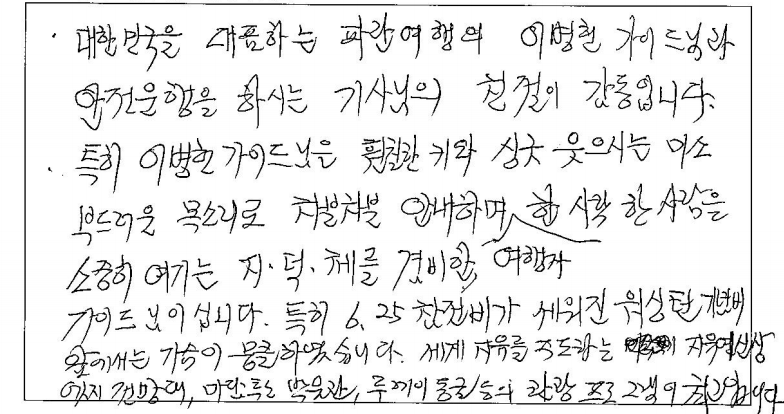 · 대한민국을 대표하는 파랑여행의 이병헌 가이드님과
안전운행을 하시는 기사님의 친절이 감동입니다.
· 특히 이병헌 가이드님은 훤칠한 키와 싱긋 웃으시는 미소
부드러운 목소리로 차분차분 안내하며 한 사람 한 사람을
소중히 여기는 지·덕·체를 겸비한 여행자
가이드님이십니다. 특히 6.25 참전비가 세워진 워싱턴 기념비
앞에서는 가슴이 뭉클하였습니다. 세계 자유를 주도하는 자유여신상
전망대, 박물관, 동굴 등의 관광 프로그램이 최고입니다